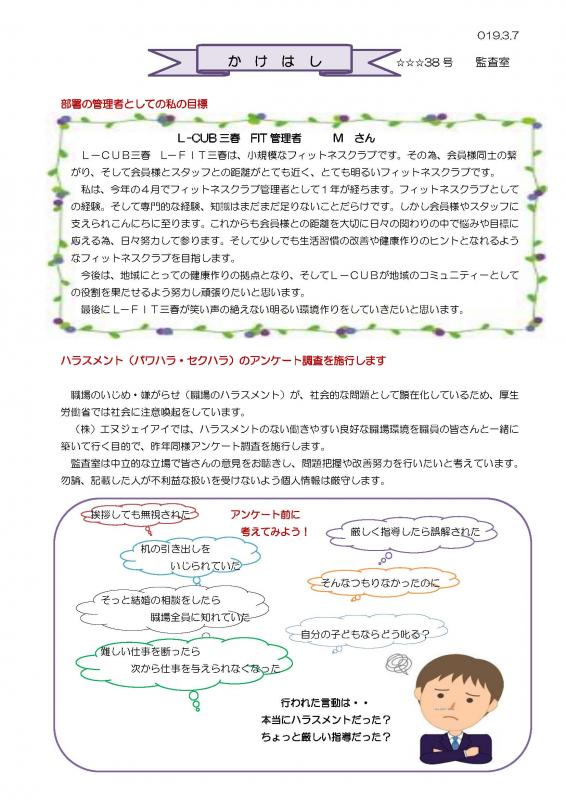 019.3.7
かけはし
☆☆☆38号　監査室
部署の管理者としての私の目標
L-CUB三春　FIT管理者　　M　さん
L－CUB三春　L－FIT三春は、小規模なフィットネスクラブです。その為、会員様同士の繋
がり、そして会員様とスタッフとの距離がとても近く、とても明るいフィットネスクラブです。
私は、今年の４月でフィットネスクラブ管理者として１年が経ちます。フィットネスクラブとして
の経験。そして専門的な経験、知識はまだまだ足りないことだらけです。しかし会員様やスタッフに
支えられこんにちに至ります。これからも会員様との距離を大切に日々の関わりの中で悩みや目標に
応える為、日々努力して参ります。そして少しでも生活習慣の改善や健康作りのヒントとなれるよう
なフィットネスクラブを目指します。
今後は、地域にとっての健康作りの拠点となり、そしてL－CUBが地域のコミュニティーとして
の役割を果たせるよう努力し頑張りたいと思います。
最後にL－FIT三春が笑い声の絶えない明るい環境作りをしていきたいと思います。
ハラスメント（パワハラ・セクハラ）のアンケート調査を施行します
職場のいじめ・嫌がらせ（職場のハラスメント）が、社会的な問題として顕在化しているため、厚生
労働省では社会に注意喚起をしています。
（株）エヌジェイアイでは、ハラスメントのない働きやすい良好な職場環境を職員の皆さんと一緒に
築いて行く目的で、昨年同様アンケート調査を施行します。
監査室は中立的な立場で皆さんの意見をお聴きし、問題把握や改善努力を行いたいと考えています。
勿論、記載した人が不利益な扱いを受けないよう個人情報は厳守します。
挨拶しても無視された
アンケート前に
考えてみよう！
厳しく指導したら誤解された
机の引き出しを
いじられていた
そんなつもりなかったのに
そっと結婚の相談をしたら
職場全員に知れていた
自分の子どもならどう叱る？
難しい仕事を断ったら
次から仕事を与えられなくなった
行われた言動は・・
本当にハラスメントだった？
ちょっと厳しい指導だった？